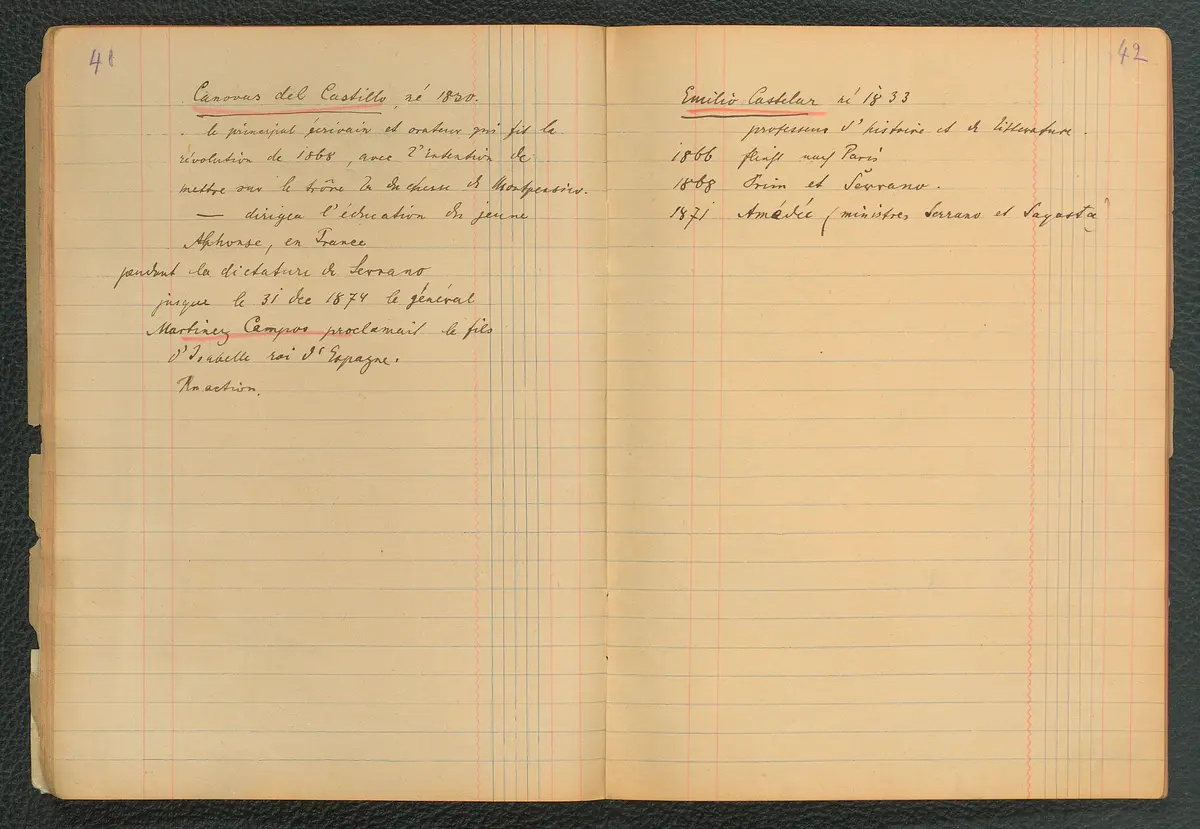 41
Canovas del Castillo, né 1830.
le principal écrivain et orateur qui fit la
révolution de 1868, avec l'Intention de
mettre sur le trône la duchesse de Montpensier.
— dirigea l'éducation du jeune
Alphonse, en France
pendant la dictature de Serrano
jusque le 31 dec 1874 le général
Martinez Campos proclamait le fils
d'Isabelle roi d'Espagne.
Reaction.
42
Emilio Castelar né 1833
professeur d'histoire et de litterature.
1866 flieht nach Paris
1868 Prim et Serrano.
1871 Amédée (ministres Serrano et Sagasta)